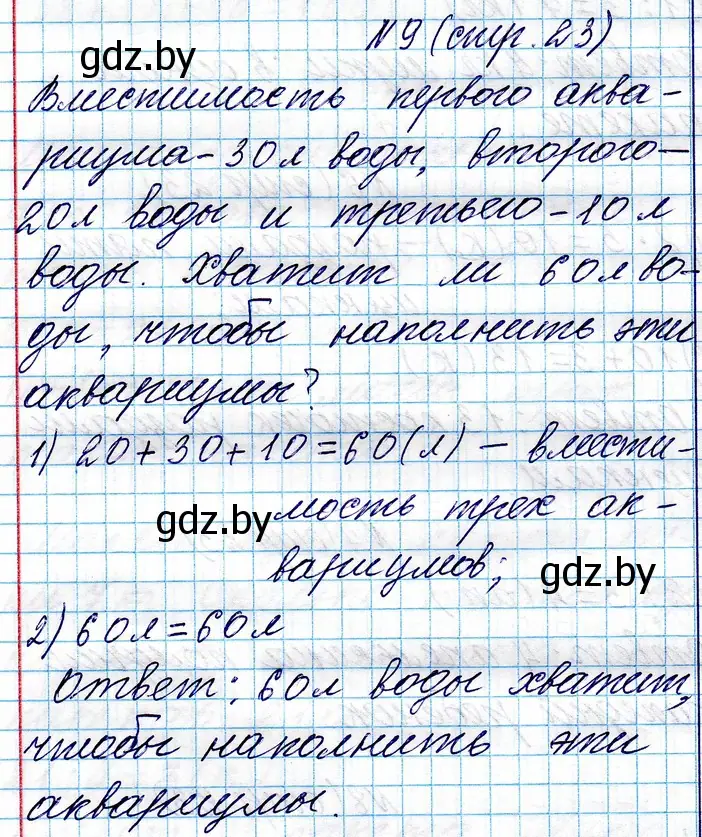 №9 (стр. 23)
gdz.by
Вместимость первого аква-
риума-30л воды, второго-
20л воды и третьего-10л
воды. Хватит ли 60л во-
ды, чтобы наполнить эти
аквариумы?
1) 20+30+10=60(л) - вмести-
gdz.by
мость трех ак-
gdz.by
вариумов;
2) 60л=60л
Ответ: 60л воды хватит,
чтобы наполнить эти
аквариумы.